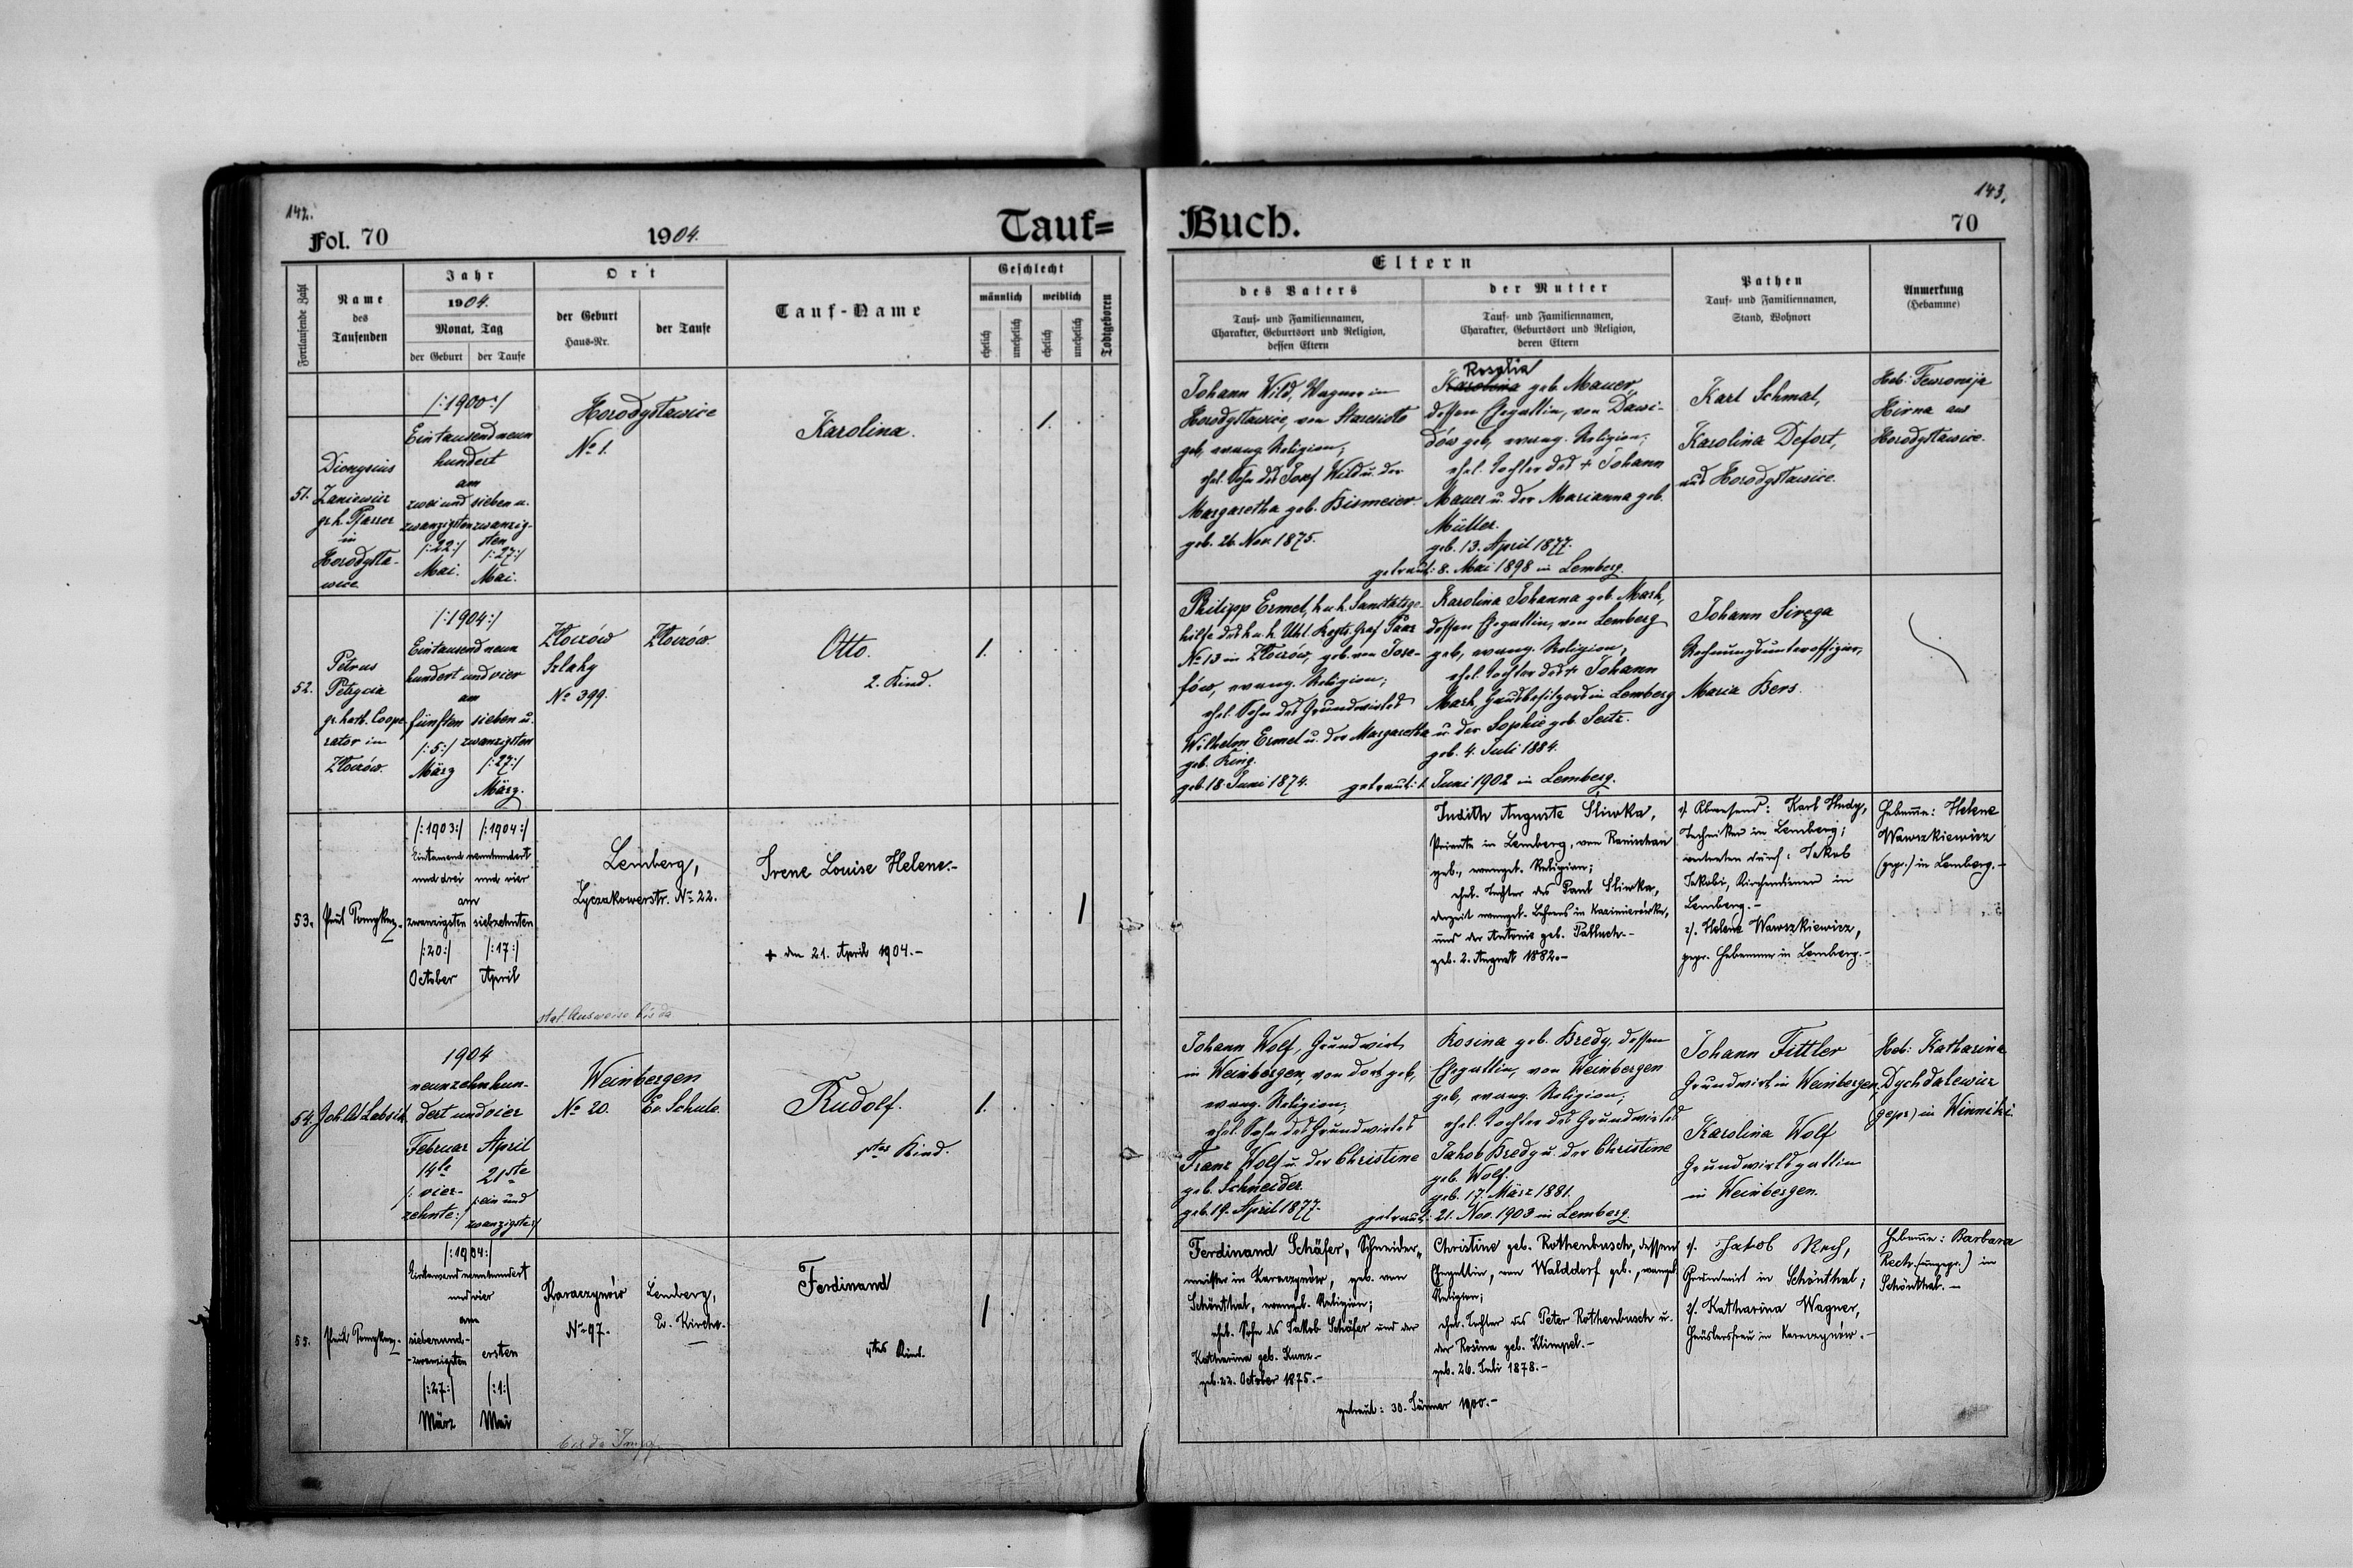 142.
Fol. 70
1904.
Tauf=
Fortlaufende Zahl
Name
des
Taufenden
Jahr
1904.
Monat, Tag
der Geburt
der Taufe
Ort
der Geburt
Haus-Nr.
der Taufe
Tauf-Name
Geschlecht
männlich
weiblich
ehelich
unehelich
ehelich
unehelich
Todtgeboren
51.
Dionysius
Zaniewicz
gr. k. Pfarrer
in
Horodysta-
wice
/:1900:/
Eintausend neun
hundert
am
zwei und
zwanzigsten
/:22:/
Mai.
sieben u.
zwanzig-
sten
/:27:/
Mai.
Horodystawice
No 1.
Karolina.
1.
52.
Petrus
gr. kath. Coope
rator in
Złoczów.
/:1904:/
Eintausend neun
hundert und vier
am
fünften
/:5:/
März
sieben u.
zwanzigsten
/:27:/
März.
Złoczów
Szlaky
No 399.
Złoczów.
Otto.
2. Kind.
1.
53.
Paul
/:1903:/ /:1904:/
Eintausend neunhundert
und drei und vier
am
zwanzigsten siebzehnten
/:20:/ /:17:/
October April
Lemberg,
Lyczakowerstr. No 22.
Irene Louise Helene.-
+ den 21. April 1904.-
1
stat. Ausweise bis da
54.
1904
neunzehnhun-
dert und vier
Februar
14te
/: vier-
zehnte:/
April
21ste
/:ein und
zwanzigste:/
Weinbergen
No 20.
Ev. Schule.
Rudolf.
1tes Kind.
1.
55.
Paul
/:1904:/
Eintausend neunhundert
und vier
am
siebenund-
-zwanzigsten
/:27:/
März
ersten
/:1:/
Mai
Karaczynów
No 97.
Lemberg,
Ev. Kirche.
Ferdinand
4tes Kind.
1
143.
Buch.
70
Eltern
des Vaters
Tauf- und Familiennamen,
Charakter, Geburtsort und Religion,
dessen Eltern
der Mutter
Tauf- und Familiennamen,
Charakter, Geburtsort und Religion,
deren Eltern
Pathen
Tauf- und Familiennamen,
Stand, Wohnort
Anmerkung
(Hebamme)
Johann Wild, Wagner in
Horodystawice, von
geb, evang. Religion;
ehel. Sohn des Josef Wild u. der
Margaretha geb. Bismeier.
geb. 26. Nov. 1875.
Rosalia
Karolina geb. Mauer,
dessen Ehegattin, von Dawi-
dów geb, evang. Religion;
ehel. Tochter des + Johann
Mauer u. der Marianna geb.
Müller.
geb. 13. April 1877.
getraut: 8. Mai 1898 in Lemberg.
Karl Schmal,
Karolina Defort,
aus Horodystawice.
Heb: Fewronija
Hirna aus
Horodystawice.
Philipp Ermel, k. u. k. Sanitätsge-
hilfe des k. u. k. Uhl. Regts. Graf Paar
No 13 in Złoczów, geb. von Jose-
fów, evang. Religion;
ehel. Sohn des Grundwirtes
Wilhelm Ermel u. der Margaretha
geb. King.
geb. 18. Juni 1874.
Karolina Johanna geb. Mark,
dessen Ehegattin, von Lemberg
geb, evang. Religion,
ehel. Tochter des + Johann
Mark, Hausbesitzers in Lemberg
u. der Sophie geb. Seitz.
geb. 4. Juli 1884.
getraut: 1. Juni 1902 in Lemberg.
Johann
Rechnungsunteroffizier,
Maria Kers.
Judith Auguste Śliwka,
Private in Lemberg, von
geb., evangel. Religion;
ehel. Tochter des Paul Śliwka,
derzeit evangel. Lehrers in Kazimierówka,
und der Antonie geb.
geb. 2. August 1882.-
1/. Abwesend: Karl Hudy,
Techniker in Lemberg;
vertreten durch: Jakob
Jakobi, Kirchendiener in
Lemberg.-
2/. Helene Wawszkiewicz,
gepr. Hebamme in Lemberg.-
Hebamme: Helene
Wawszkiewicz
(gepr.) in Lemberg.-
Johann Wolf, Grundwirt
in Weinbergen, von dort geb,
evang. Religion;
ehel. Sohn des Grundwirtes
Franz Wolf u. der Christine
geb. Schneider.
geb. 19. April 1877.
Rosina geb. Bredy, dessen
Ehegattin, von Weinbergen
geb, evang. Religion;
ehel. Tochter des Grundwirtes
Jakob Bredy u. der Christine
geb. Wolf.
geb. 17. März 1881.
getraut: 21. Nov. 1903 in Lemberg.
Johann Fittler
Grundwirt in Weinbergen,
Karolina Wolf
Grundwirtsgattin
in Weinbergen.
Heb: Katharina
Dychdalewicz
(gepr) in Winniki.
Ferdinand Schäfer, Schneider-
meister in Karaczynów, geb. von
Schönthal, evangel. Religion;
ehel. Sohn des Jakob Schäfer und der
Katharina geb. Kunz.-
geb. 23. October 1875.-
Christine geb. Rothenbusch, dessen
Ehegattin, von Walddorf geb., evangel.
Religion;
ehel. Tochter des Peter Rothenbusch u.
der Rosina geb. Klimpel.-
geb. 26. Juli 1878.-
getraut: 30. Jänner 1900.-
1/. Jakob Rech,
Grundwirt in Schönthal;
2/. Katharina Wagner,
Häuslersfrau in Karaczynów.-
Hebamme: Barbara
Rech (ungepr.) in
Schönthal.-